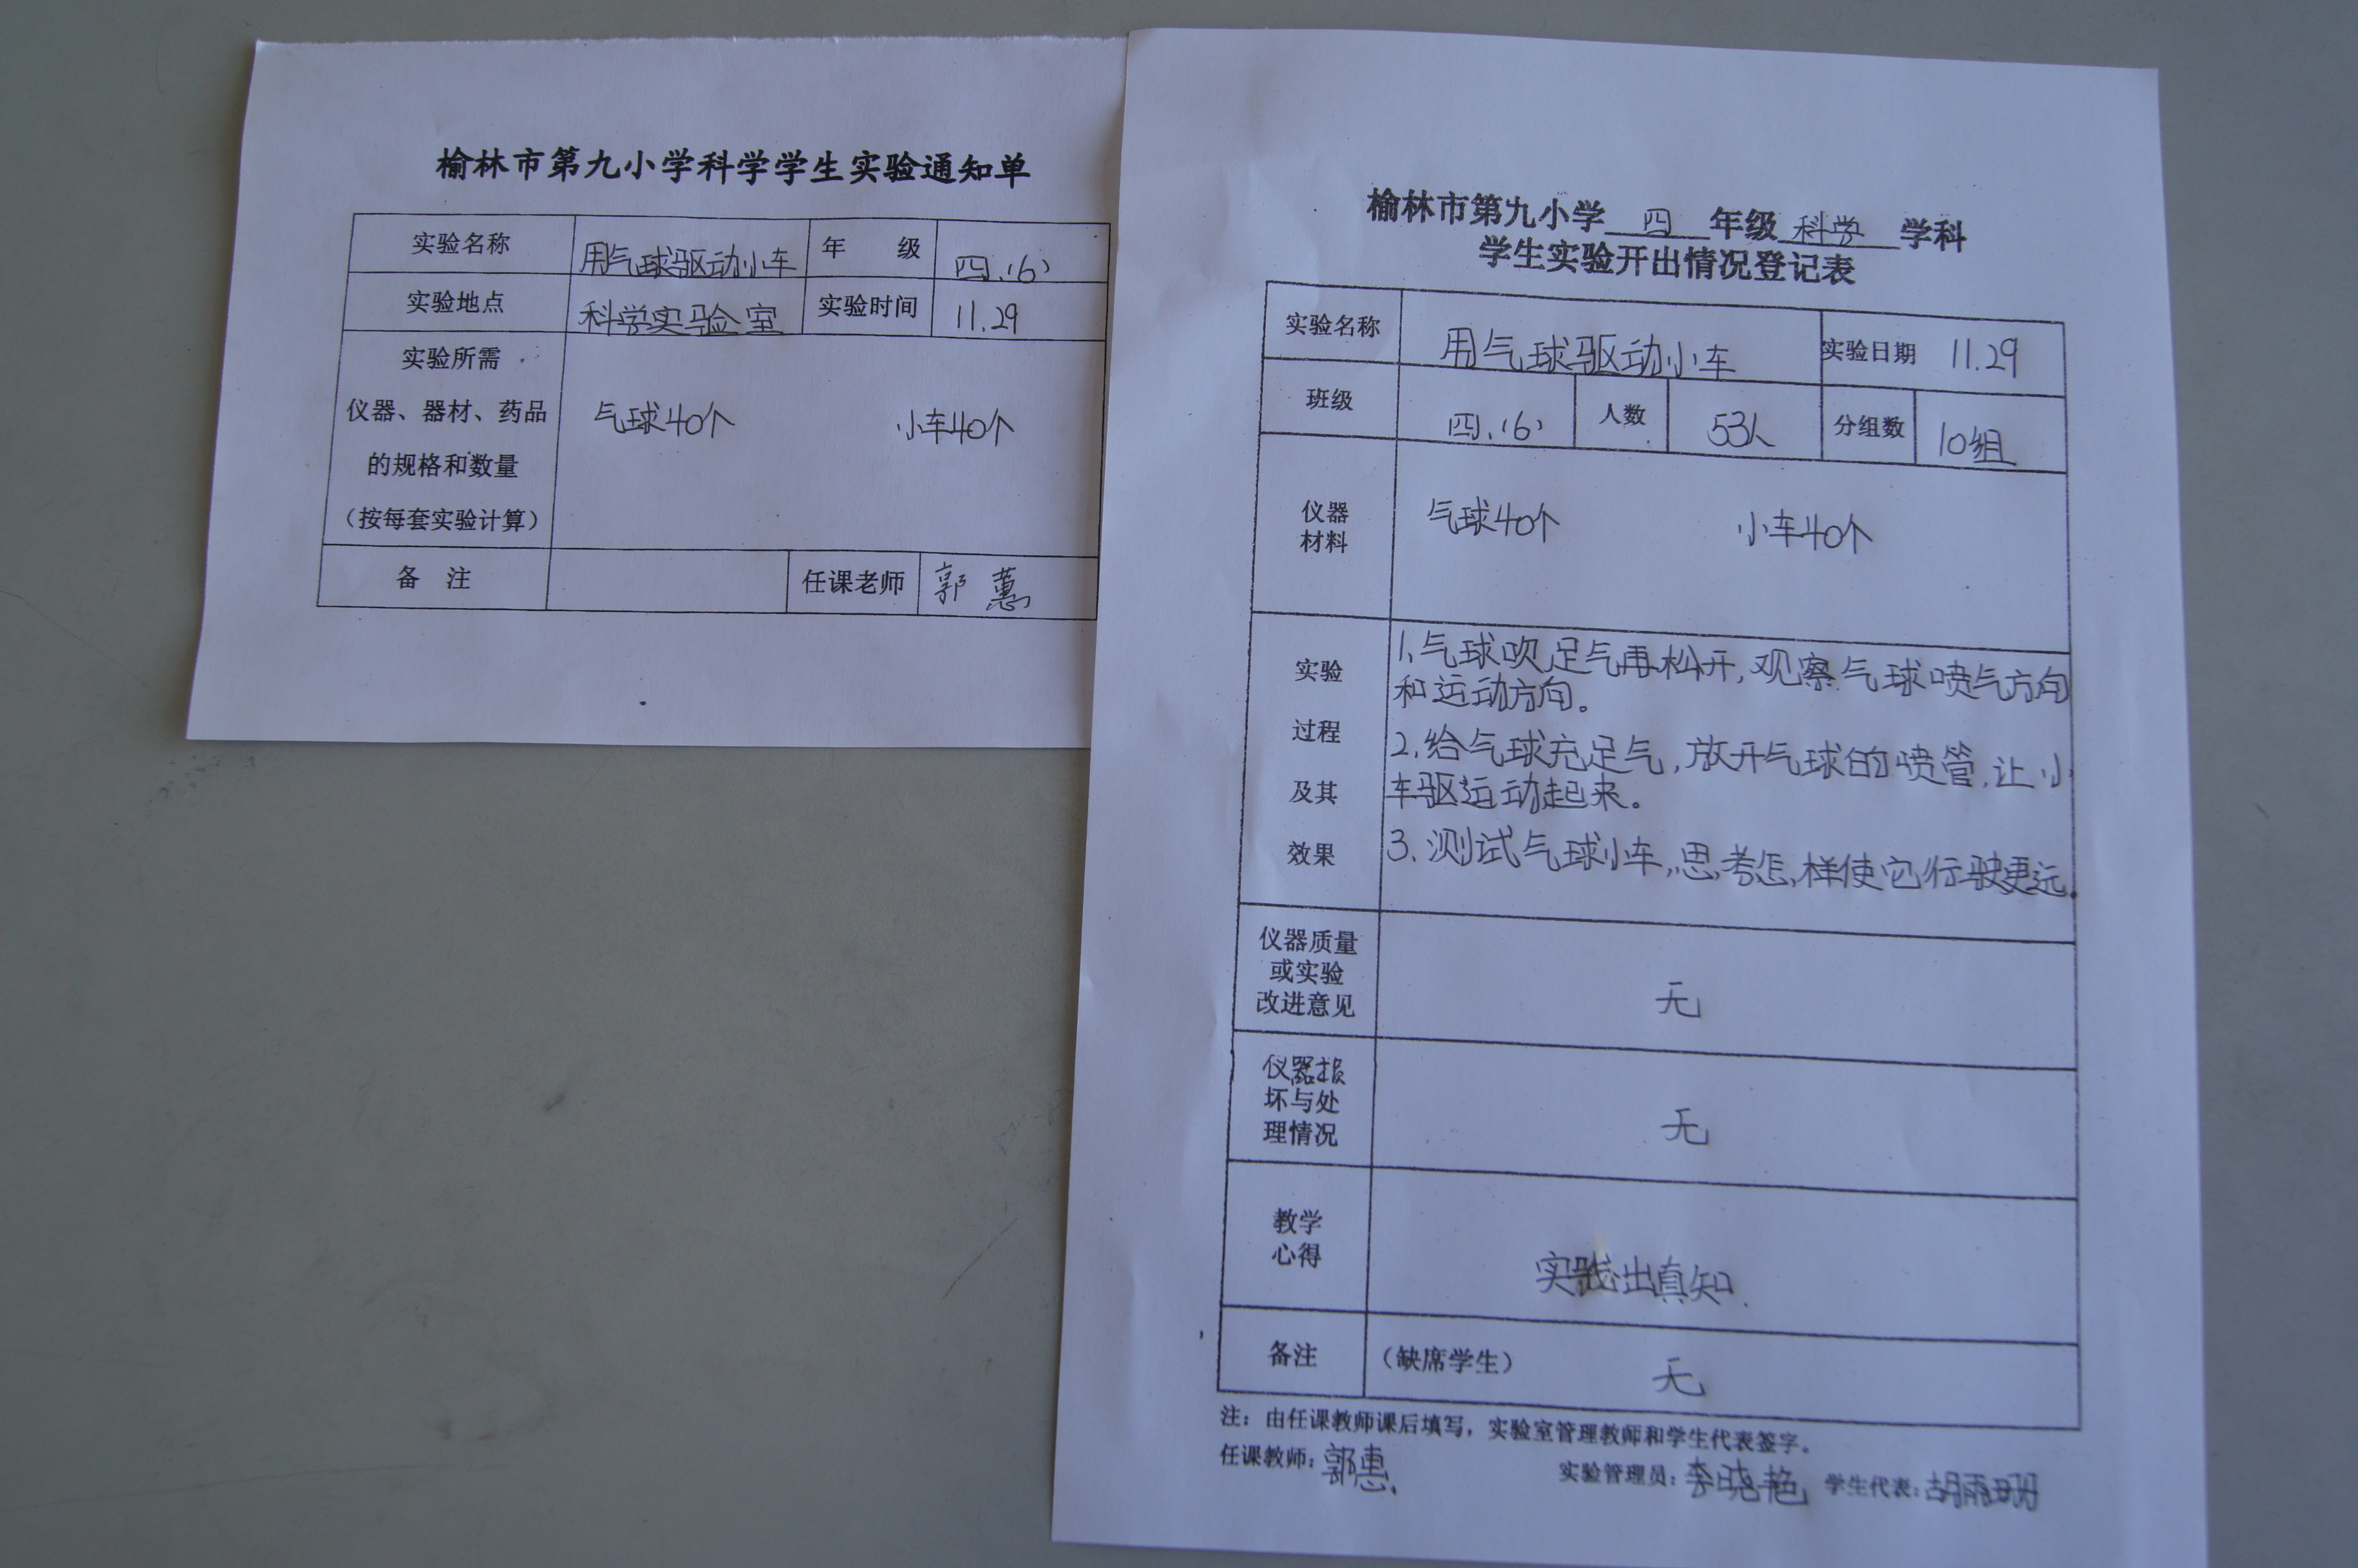 榆林市第九小学科学学生实验通知单
实验名称 用气球驱动小车 年 级 四.(6)
实验地点 科学实验室 实验时间 11.29
实验所需
仪器、器材、药品
的规格和数量
(按每套实验计算)
气球40个 小车40个
备 注 任课老师 郭蕙
榆林市第九小学 四 年级 科学 学科
学生实验开出情况登记表
实验名称 用气球驱动小车 实验日期 11.29
班级 四.(6) 人数 53人 分组数 10组
仪器
材料
气球40个 小车40个
实验
过程
及其
效果
1.气球吹足气再松开,观察气球喷气方向
和运动方向。
2.给气球充足气,放开气球的喷管,让小
车驱运动起来。
3.测试气球小车,思考怎样使它行驶更远.
仪器质量
或实验
改进意见
无
仪器损
坏与处
理情况
无
教学
心得
实践出真知.
备注 (缺席学生) 无
注:由任课教师课后填写,实验室管理教师和学生代表签字。
任课教师:郭惠 实验管理员:李晓艳 学生代表:胡雨珊